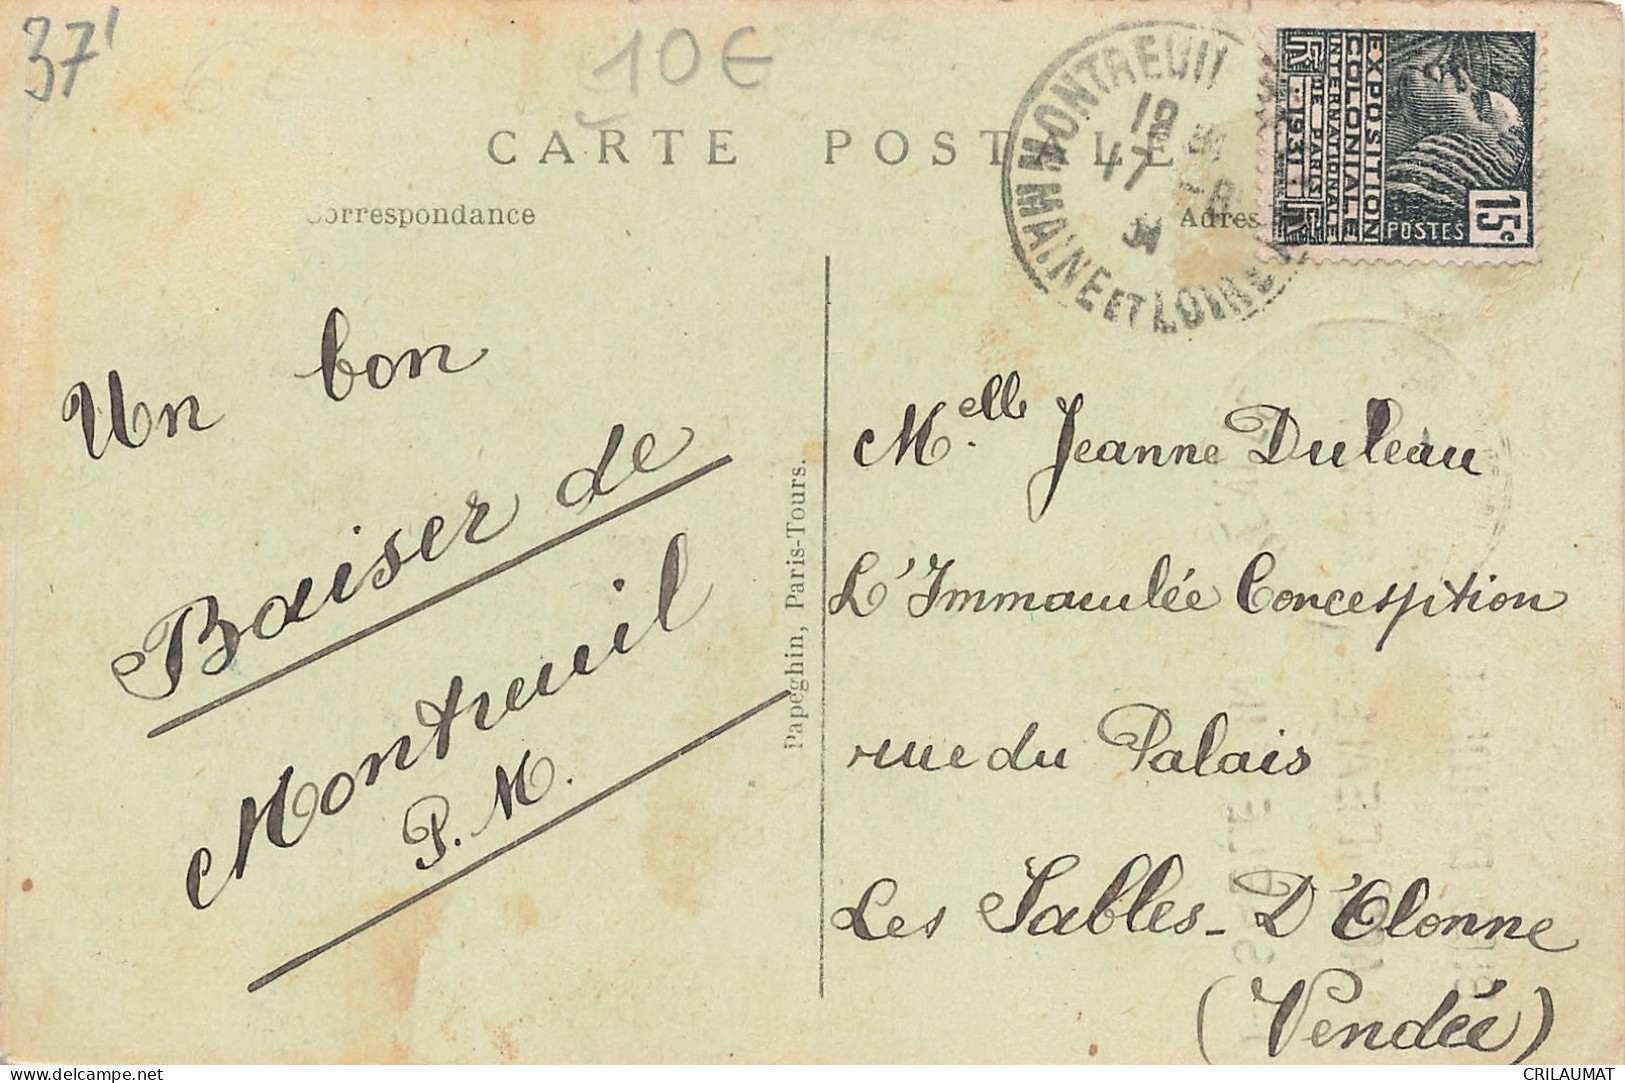 37'
10€
CARTE POSTALE
Correspondance
Adres
MONTREUIL
MAINE ET LOIRE
18
47
31
EXPOSITION
COLONIALE
INTERNATIONALE
DE PARIS
1931
RF
POSTES
15c
Un bon
Baiser de
Montreuil
P. M.
Papeghin, Paris-Tours.
Melle Jeanne Duleau
L'Immaculée Conception
rue du Palais
Les Sables-D'Olonne
(Vendée)
delcampe.net
CRILAUMAT